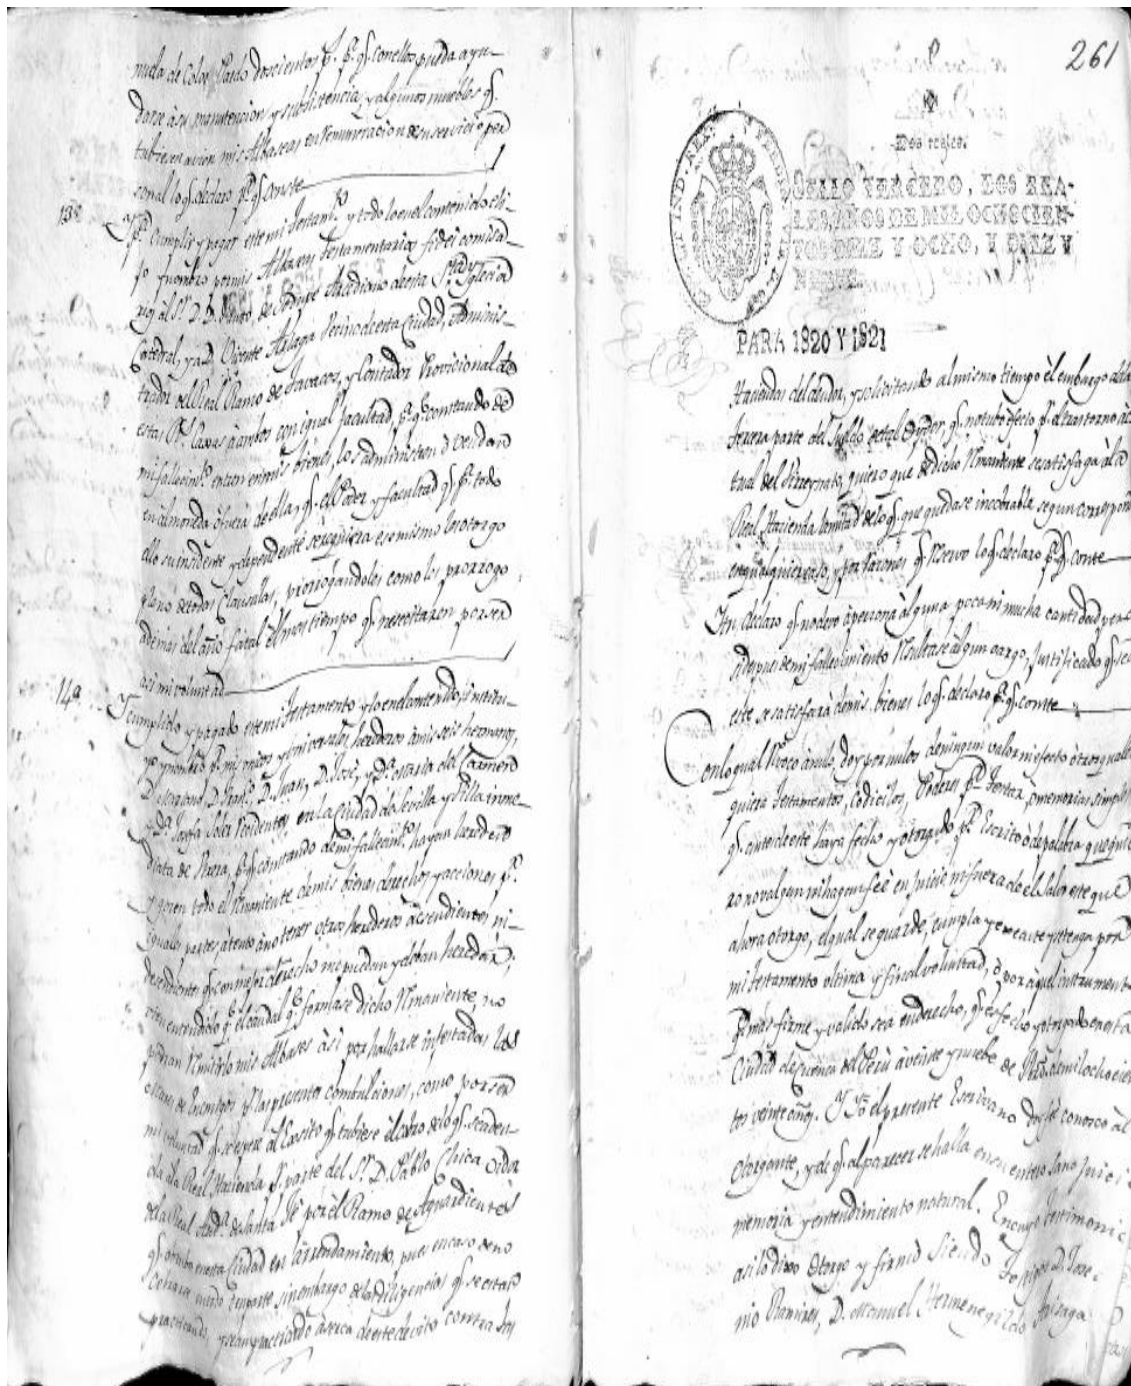 nuela de Color Pardo doscientos p.s p.a q.e con ellos pueda ayu-
darse à su manutencion y subsistencia, y algunos muebles q.e
tubiesen a vien mis Albaseas en remuneracion de su servicio per
sonal lo q.e declaro p.a q.e conste
13ª Y p.a cumplir y pagar este mi Testam.to y todo lo en el contenido eli-
jo y nombro por mis Albaseas testamentarios fideicomisa-
rios al S.r D.r D. de Arcediano de esta S.ta Yglecia
Catedral, y a D. Vicente Astaga Vecino de esta Ciudad, Adminis-
trador del Real Ramo de Tavacos, y Contador Provicional de
estas R.s Caxas à ambos con igual facultad, p.a q.e constando de
mi fallecim.to entren en mis bienes, los administren ò vendan
en almoneda ò fuera de ella, q.e el Poder y facultad q.e p.a todo
ello su insidente y dependente serequiera ese mismo les otorgo
pleno de todas Clausulas, prorrogandoles como les prorrogo
ademas del año fatal el mas tiempo q.e necesitaren por ser
asi mi voluntad
14ª Y cumplido y pagado este mi Testamento y lo en el contenido, institu-
yo y nombro p.r mis unicos y universales herederos à mis seis hermanos,
D. Mariano, D. Fran.co D. Juan, D. José, y D.a Maria del Carmen
y D.a Josefa Soler Recidentes en la Ciudad de Sevilla y Villa inme-
diata de Utrera, p.a q.e constando de mi fallecim.to hayan hereden
y gosen todo el remaniente de mis bienes derechos y acciones, p.r
iguales partes, atento à no tener otros herederos acsendientes ni
desendientes q.e con mejor derecho me puedan y deban heredar;
vien entendido q.e el caudal q.e formase dicho remaniente, no
podran remitirlo mis Albaseas àsi por hallarse infestados los
mares de Enemigos y las presentes combulciones, como por ser
mi voluntad q.e se espere al Exsito q.e tubiese el cobro de lo q.e se adeu-
da à la Real Hacienda p.r parte del S.r D. Pablo Chica Oidor
de la Real Aud.a de Santa Fé por el Ramo de Aguardientes
q.e estubo en esta Ciudad en arrendamiento, pues en caso de no
en parte sin embargo de las diligencias q.e se estan
practicando, y sean practicando acerca de este devito contra las
261
Dos reales.
HISP. ET IND. REX. FERDIN. VII D. G.
SELLO TERCERO, DOS REA-
LES, AÑOS DE MIL OCHOCIEN-
TOS DIEZ Y OCHO, Y DIEZ Y
NUEVE.
PARA 1820 Y 1821
Haciendas del deudor, y solicitando al mismo tiempo el embargo de la
tercera parte del Sueldo de tal Oydor, q.e no tubo efecto p.r el trastorno ac
tual del Virreynato, quiero que de dicho remaniente se satisfaga à la
Real Hacienda la mitad de lo q.e que quedase incobrable segun correspon
en qualquier caso, y por rasones q.e reservo lo q.e declaro p.a q.e conste
Itn declaro q.e no devo à persona alguna poca ni mucha cantidad pero
si despues de mi fallecimiento resultase algun cargo, justificado q.e sea
este, se satisfarà de mis bienes lo q.e declaro p.a q.e conste
Con lo qual revoco anulo, doy por nulos de ningun valor ni efecto otros quales
quiera Testamentos, Codicilos, Poderes p.a Testar, o memorias simples
q.e antes de este haya fecho y otorgado p.r Escrito ò de palabra q.e quie
ro no valgan ni hagan fe en Juicio ni fuera de el salvo este que
ahora otorgo, el qual se guarde, cumpla y execute y se tenga por
mi Testamento ultima y final voluntad, ò por aquel instrumento
q.e mas firme y valido sea en derecho, q.e es fecho y otorgado en esta
Ciudad de Cuenca del Perù à veinte y nuebe de de mil ochocien
tos veinte años. Y Yo el presente Escrivano doy fé conosco àl
Otorgante, y de q.e al parecer se halla en su entero Sano Juicio
memoria y entendimiento natural. En cuyo testimonio
asi lo dixo Otorgo y firmò Siendo Testigos D. Jose
nio Ramires, D. Manuel Hermenegildo Arisaga